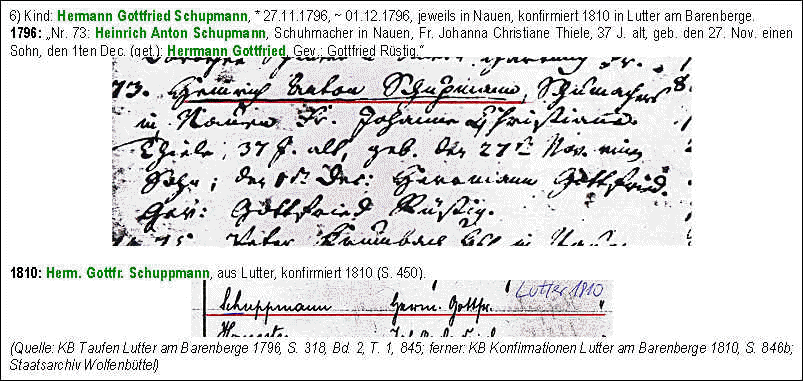 6) Kind: Hermann Gottfried Schupmann, * 27.11.1796, ~ 01.12.1796, jeweils in Nauen, konfirmiert 1810 in Lutter am Barenberge.
1796: „Nr. 73: Heinrich Anton Schupmann, Schuhmacher in Nauen, Fr. Johanna Christiane Thiele, 37 J. alt, geb. den 27. Nov. einen
Sohn, den 1ten Dec. (get.): Herrmann Gottfried, Gev.: Gottfried Rüstig.“
73. Heinrich Anton Schupmann, Schumacher
in Nauen Fr. Johanne Christiane
Thiele, 37 J. alt, geb. den 27ten Nov. einen
Sohn; den 1ten Dec: Herrmann Gottfried.
Gev: Gottfried Rüstig.
1810: Herm. Gottfr. Schuppmann, aus Lutter, konfirmiert 1810 (S. 450).
Lutter 1810
Schuppmann Herm. Gottfr. "
(Quelle: KB Taufen Lutter am Barenberge 1796, S. 318, Bd. 2, T. 1, 845; ferner: KB Konfirmationen Lutter am Barenberge 1810, S. 846b;
Staatsarchiv Wolfenbüttel)